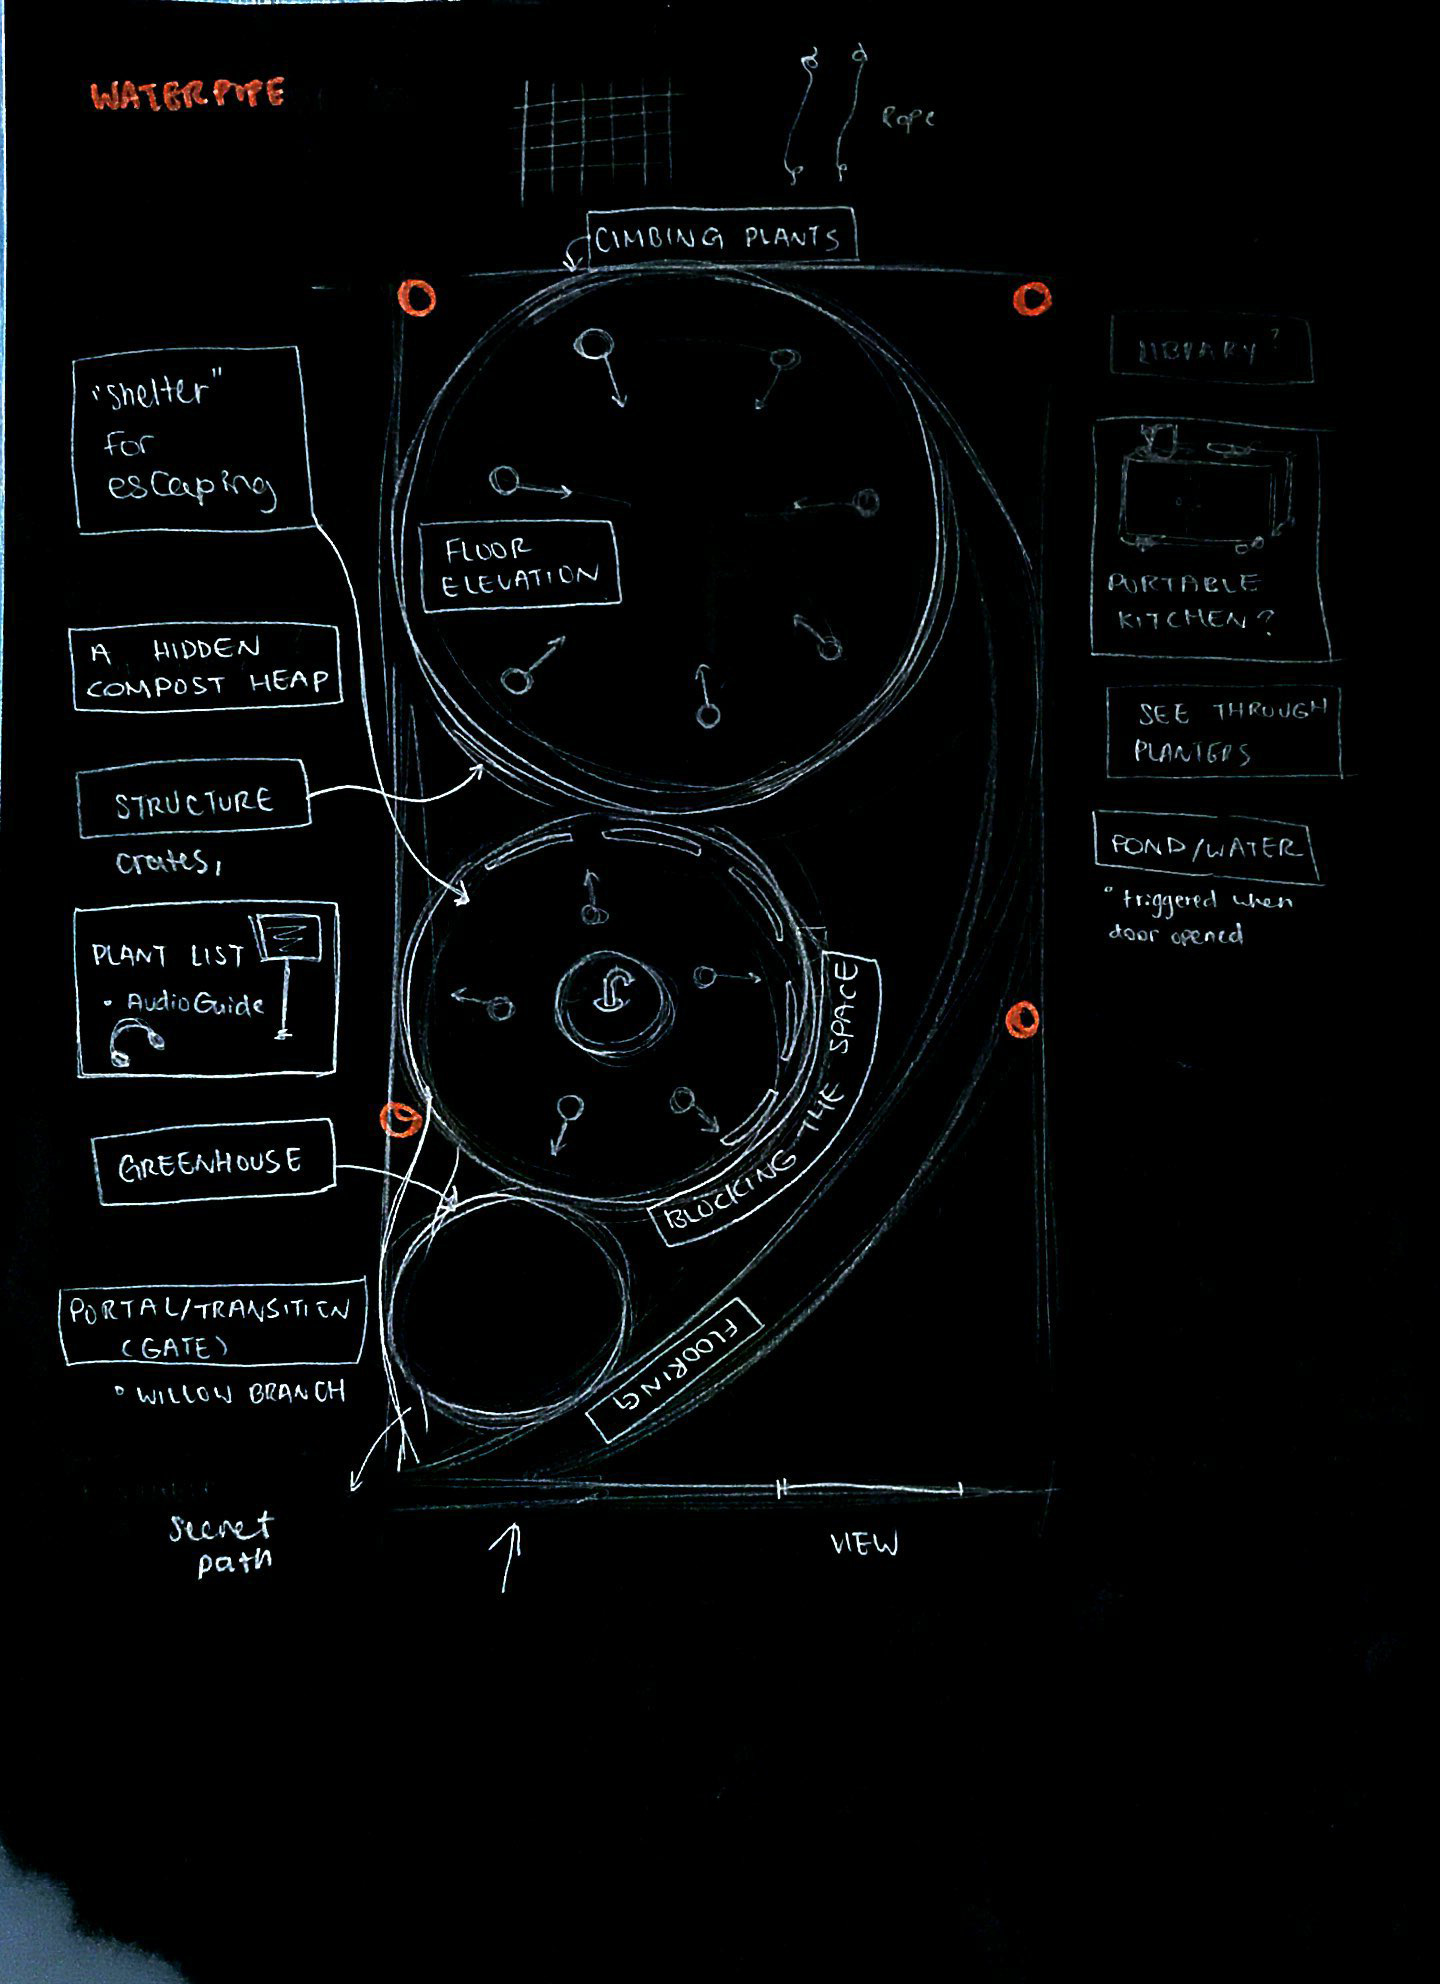 WATERPIPE
Rope
CIMBING PLANTS
"shelter"
for
escaping
FLOOR
ELEVATION
A HIDDEN
COMPOST HEAP
STRUCTURE
crates,
PLANT LIST
• Audio Guide
GREENHOUSE
PORTAL/TRANSITION
(GATE)
° WILLOW BRANCH
secret
path
BLOCKING THE SPACE
FLOORING
VIEW
LIBRARY?
PORTABLE
KITCHEN?
SEE THROUGH
PLANTERS
POND/WATER
° triggered when
door opened